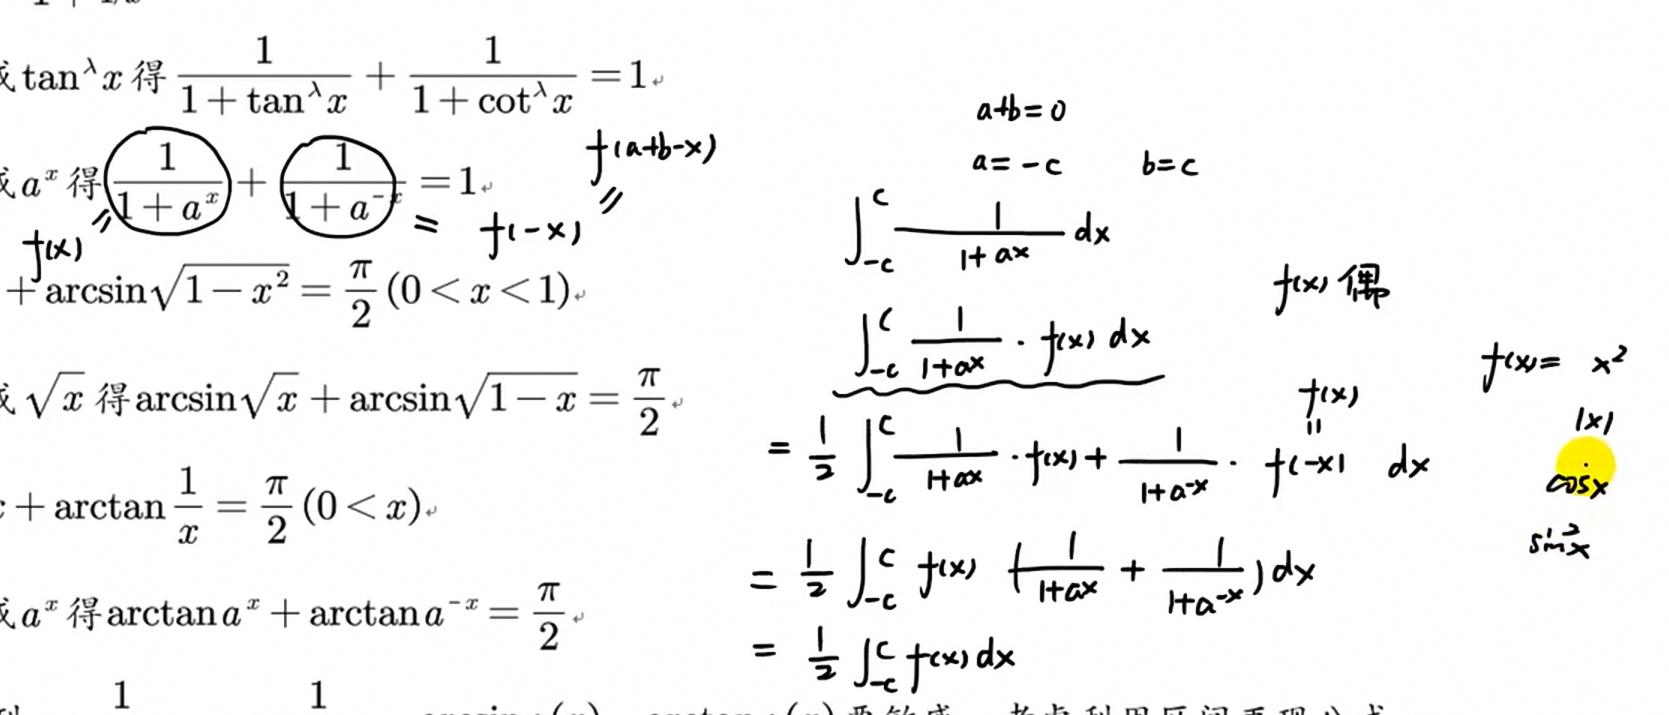 tan^λ x 得 1/(1+tan^λ x) + 1/(1+cot^λ x) = 1
a^x 得 1/(1+a^x) + 1/(1+a^-x) = 1
f(x) = f(-x) = f(a+b-x)
+ arcsin√(1-x²) = π/2 (0<x<1)
√x 得 arcsin√x + arcsin√(1-x) = π/2
+ arctan 1/x = π/2 (0<x)
a^x 得 arctan a^x + arctan a^-x = π/2
1 1
a+b=0
a=-c b=c
∫_-c^c 1/(1+a^x) dx
f(x) 偶
∫_-c^c 1/(1+a^x) · f(x) dx
f(x)= x²
|x|
cosx
sin²x
f(x)
=
= 1/2 ∫_-c^c 1/(1+a^x) · f(x) + 1/(1+a^-x) · f(-x) dx
= 1/2 ∫_-c^c f(x) (1/(1+a^x) + 1/(1+a^-x)) dx
= 1/2 ∫_-c^c f(x) dx